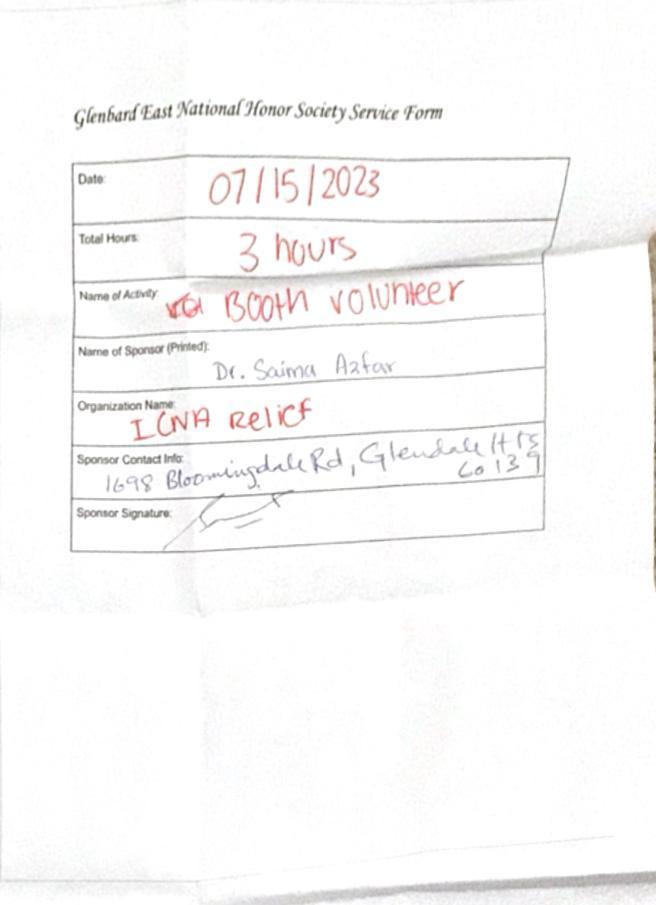 Glenbard East National Honor Society Service Form
Date: 07/15/2023
Total Hours: 3 hours
Name of Activity: Booth volunteer
Name of Sponsor (Printed):
Dr. Saima Azfar
Organization Name:
ICNA Relief
Sponsor Contact Info:
1698 Bloomingdale Rd, Glendale Hts
60139
Sponsor Signature: